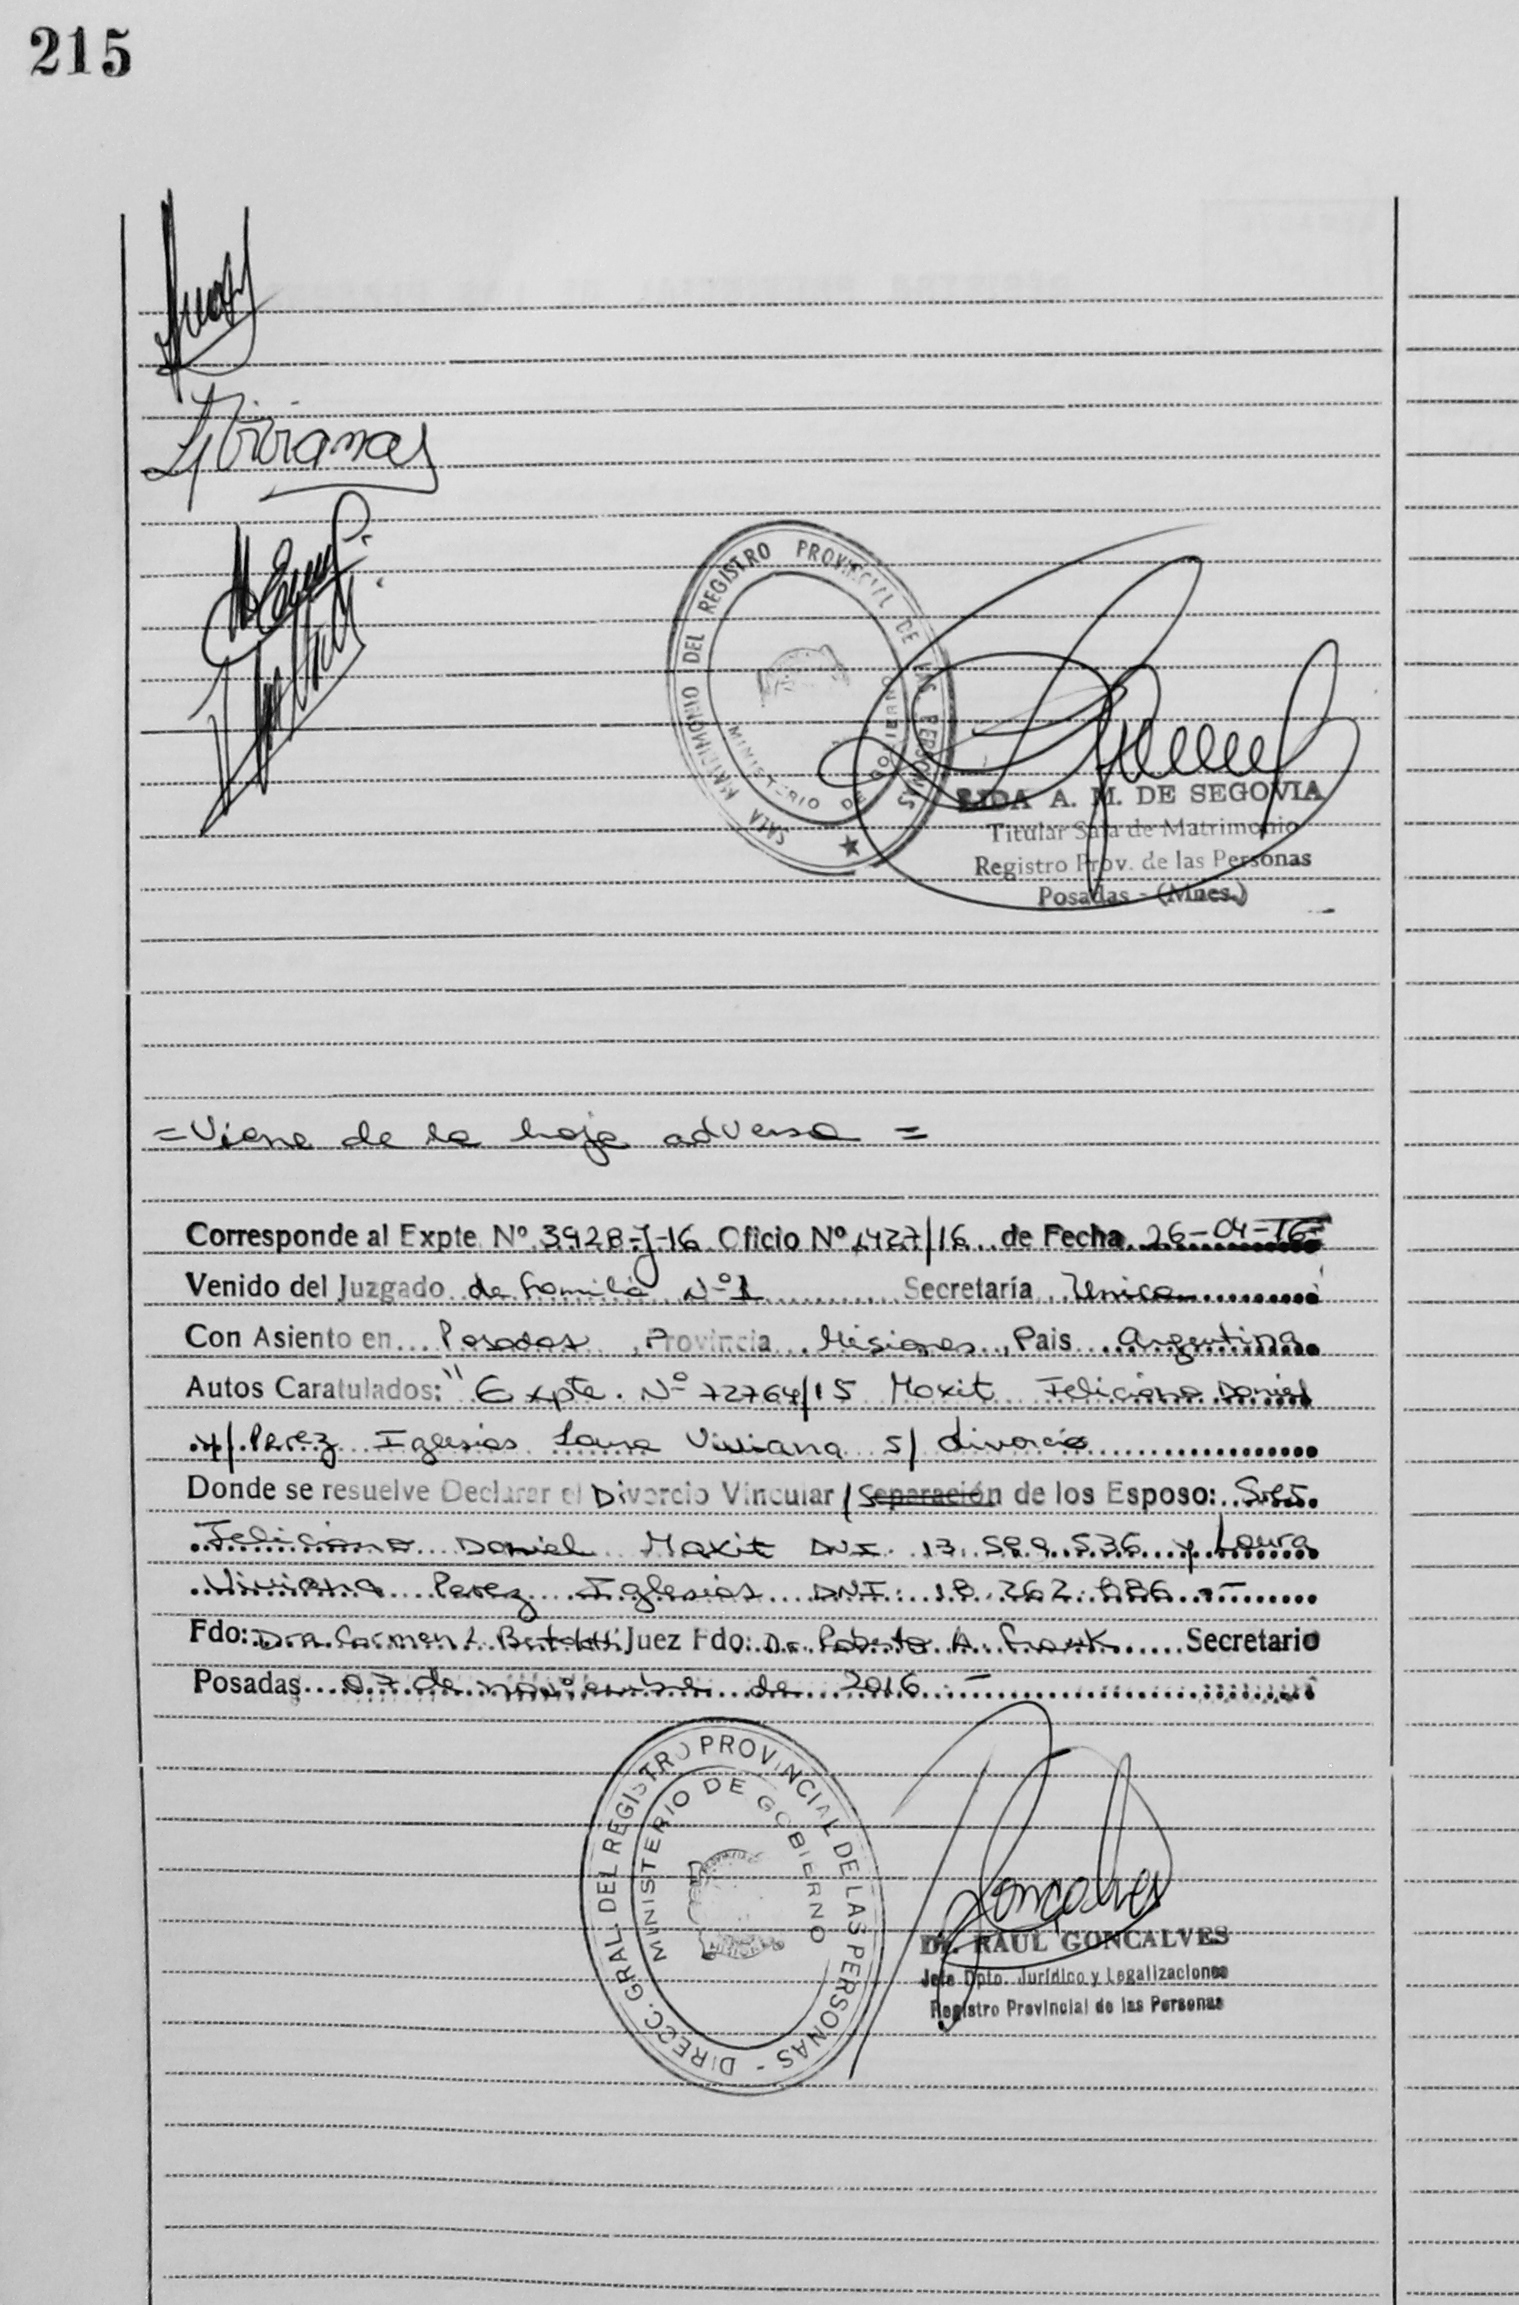 215
Viviana
SALA MATRIMONIO DEL REGISTRO PROVINCIAL DE LAS PERSONAS
MINISTERIO DE GOBIERNO
LIDA A. M. DE SEGOVIA
Titular Sala de Matrimonio
Registro Prov. de las Personas
Posadas - (Mnes.)
= Viene de la hoja adversa =
Corresponde al Expte Nº 3928-J-16 Oficio Nº 1427/16 de Fecha 26-04-16-
Venido del Juzgado de Familia Nº 1 Secretaría Unica
Con Asiento en Posadas, Provincia Misiones, Pais Argentina
Autos Caratulados: "Expte. Nº 72764/15 Moxit Feliciano Daniel
y/ Perez Iglesias Laura Viviana s/ divorcio
Donde se resuelve Declarar el Divorcio Vincular / Separación de los Esposo: Sres
Feliciano Daniel Moxit DNI. 17.599.536 y Laura
Viviana Perez Iglesias DNI: 18.262.886.-
Fdo: Dra. Carmen L. Juez Fdo: Dr. Roberto A. Secretario
Posadas 07 de noviembre de 2016 -
DIRECC. GRAL. DEL REGISTRO PROVINCIAL DE LAS PERSONAS -
MINISTERIO DE GOBIERNO
MISIONES
Goncalves
Dr. RAUL GONCALVES
Jefe Dpto. Jurídico y Legalizaciones
Registro Provincial de las Personas